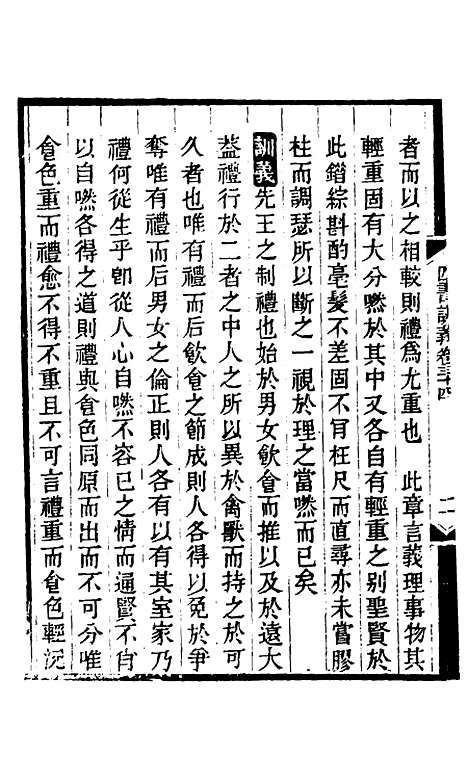 者而以之相較則禮爲尤重也　此章言義理事物其
輕重固有大分然於其中又各自有輕重之别聖賢於
此錯綜斟酌毫髮不差固不肎枉尺而直尋亦未嘗膠
柱而調瑟所以斷之一視於理之當然而已矣
訓義先王之制禮也始於男女飮食而推以及於遠大
葢禮行於二者之中人之所以異於禽獸而持之於可
久者也唯有禮而后飮食之節成則人各得以免於爭
奪唯有禮而后男女之倫正則人各有以有其室家乃
禮何從生乎卽從人心自然不容已之情而通賢不肖
以自然各得之道則禮與食色同原而出而不可分唯
食色重而禮愈不得不重且不可言禮重而食色輕況
四書訓義卷三十四
二